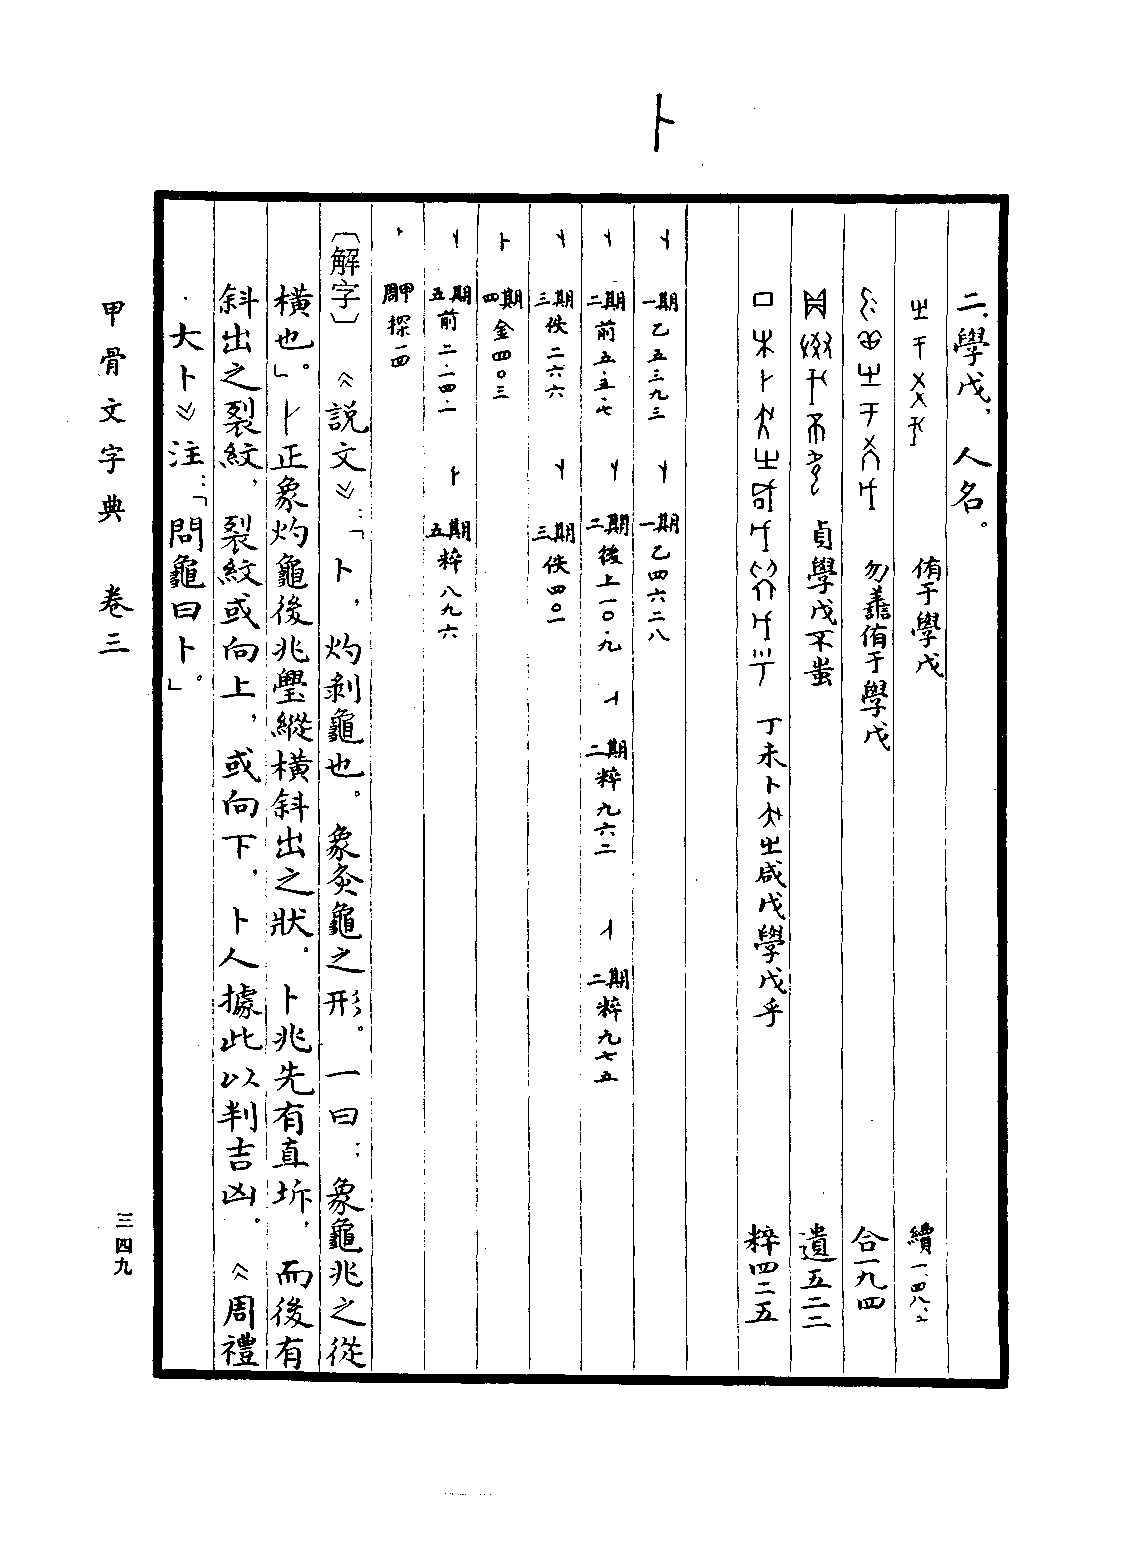 卜
二、學戊，人名。
侑于學戊　續一.四八.
勿譱侑于學戊　合一九四
貞學戊不蚩　遺五二二
丁未卜㞢咸戊學戊乎　粹四二五
一期乙五三九三　一期乙四六二八
二期前五.五.七　二期後上一〇.九　二期粹九六二　二期粹九七五
三期佚二六六　三期佚四〇二
四期金四〇三
五期前二.一四.一　五期粹八九六
周甲探一四
〔解字〕《説文》：「卜，灼剥龜也。象灸龜之形。一曰：象龜兆之從
横也。」卜正象灼龜後兆璺縱横斜出之狀。卜兆先有直坼，而後有
斜出之裂紋，裂紋或向上，或向下，卜人據此以判吉凶。《周禮
·大卜》注：「問龜曰卜。」
甲骨文字典　卷三
三四九